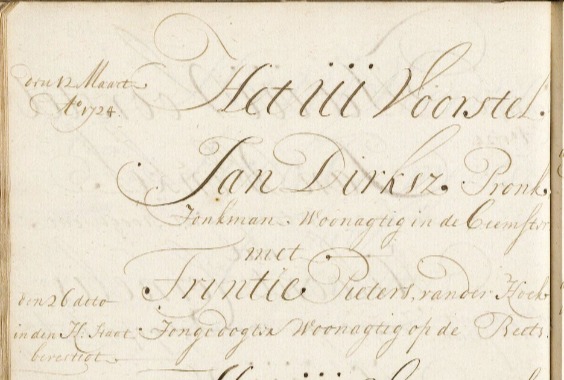 den 12 Maart
Ao 1724.
Het iii Voorstel.
Jan Dirksz. Pronk.
Jonkman Woonagtig in de Beemster
met
Trintie Pieters, vander Hoek
Jongedogter Woonagtig op de Reets.
den 26 doto
in den H. Staat
bevestigt